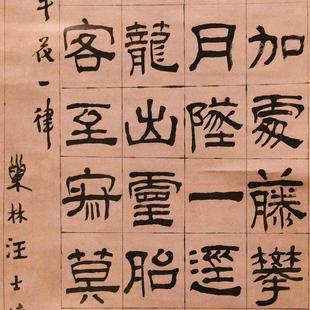 加處藤攀
月墜一逕
龍出靈胎
客至寂莫
花一律
巢林汪士